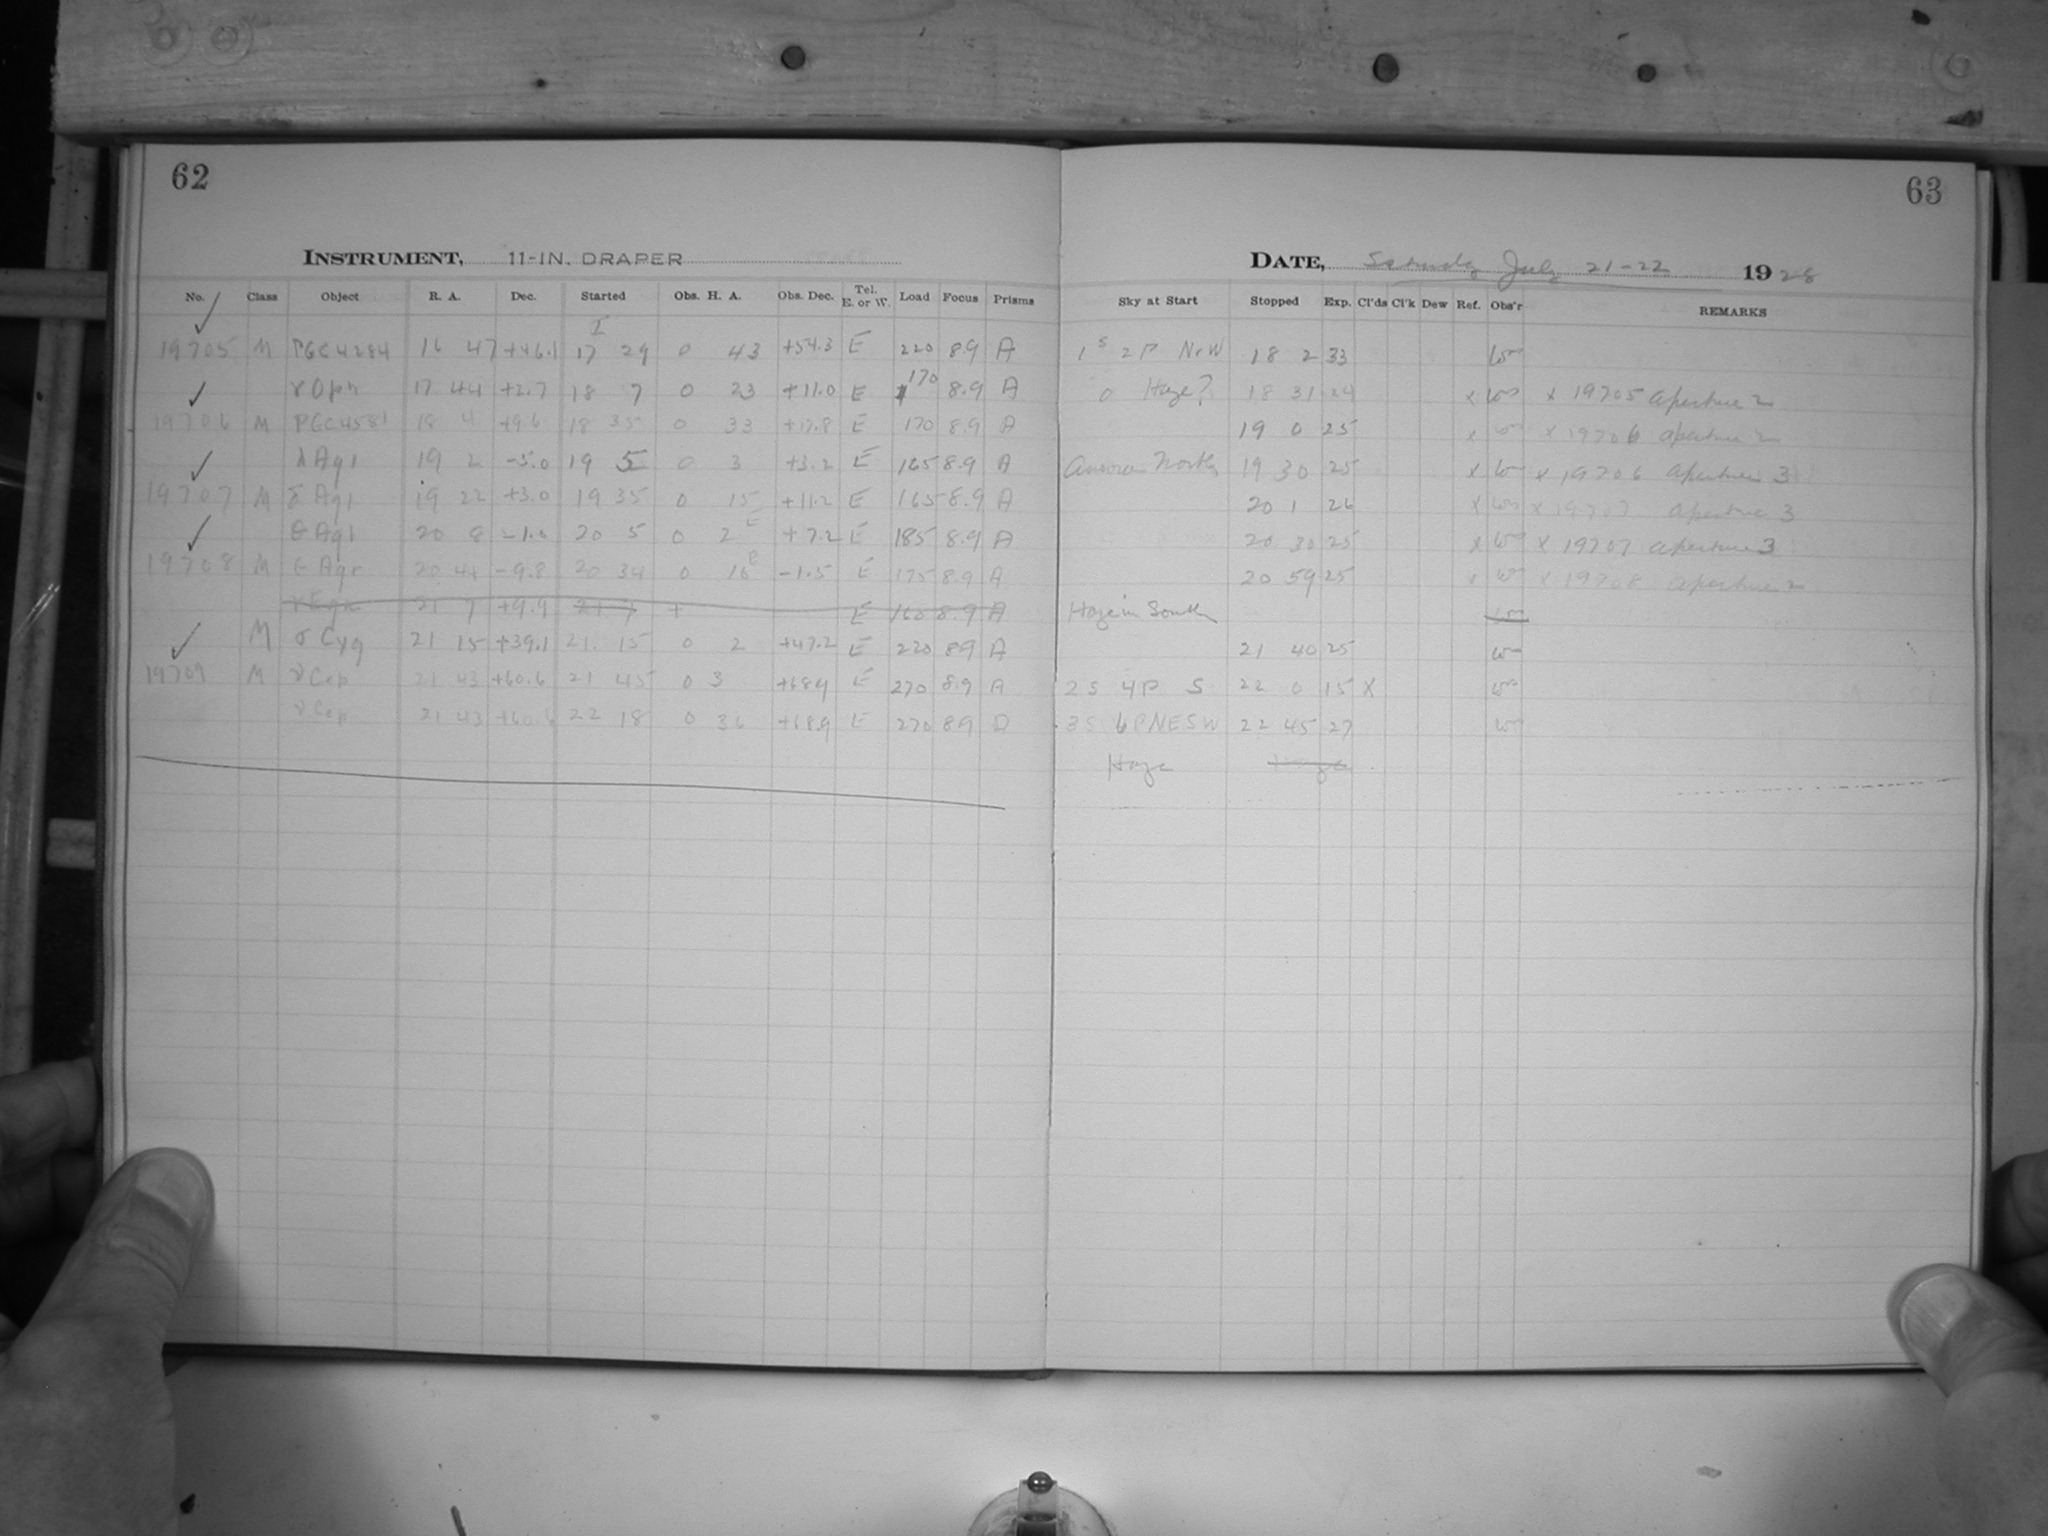 62
INSTRUMENT, 11-IN. DRAPER
No. Class Object R. A. Dec. Started Obs. H. A. Obs. Dec. Tel. E. or W. Load Focus Prisms
19705 M PGC4284 16 47 +46.1 17 29 0 43 +54.3 E 220 8.9 A
γ Oph 17 44 +2.7 18 7 0 23 +11.0 E 170 8.9 A
19706 M PGC4581 18 4 +9.6 18 35 0 33 +17.8 E 170 8.9 A
λ Aql 19 2 -5.0 19 5 0 3 +3.2 E 165 8.9 A
19707 M δ Aql 19 22 +3.0 19 35 0 15 +11.2 E 165 8.9 A
θ Aql 20 8 -1.0 20 5 0 2 E +7.2 E 185 8.9 A
19708 M ε Aqr 20 44 -9.8 20 34 0 10 E -1.5 E 175 8.9 A
γ Equ 21 7 +9.9 21 7 + E 160 8.9 A
M σ Cyg 21 15 +39.1 21 15 0 2 +47.2 E 220 89 A
19709 M ν Cep 21 43 +60.6 21 45 0 3 +689 E 270 8.9 A
ν Cep 21 43 +60.6 22 18 0 36 +68.9 E 270 89 D
63
DATE, Saturday July 21-22 1928
Sky at Start Stopped Exp. Cl'ds Cl'k Dew Ref. Obs'r REMARKS
1 S 2 P N+W 18 2 33
0 Haze? 18 31 24 x x 19705 aperture 2
19 0 25 x x 19706 aperture 2
Aurora North 19 30 25 x x 19706 aperture 3
20 1 26 x x 19707 aperture 3
20 30 25 x x 19707 aperture 3
20 59 25 x x 19708 aperture 2
Haze in South
21 40 25
2 S 4 P S 22 0 15 X
3 S 6 P NESW 22 45 27
Haze